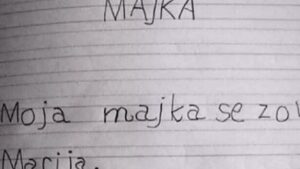 MAJKA
Moja majka se zo
Marija.